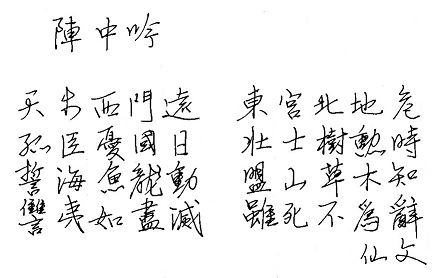 陣中吟
天步西門遠 東宮北地危
孤臣憂國日 壯士樹勳時
誓海魚龍動 盟山草木知
讐夷如盡滅 雖死不爲辭
仙文